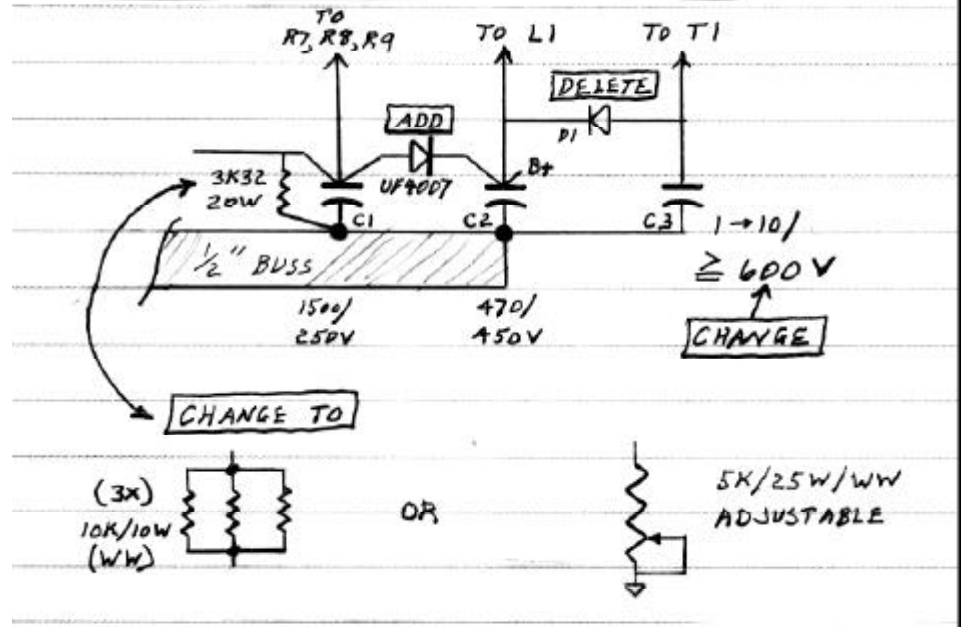 TO
R7, R8, R9
TO L1
TO T1
DELETE
D1
ADD
UF4007
B+
3K32
20W
C1
C2
C3
1→10/
≥ 600V
CHANGE
1/2" BUSS
1500/
250V
470/
450V
CHANGE TO
(3x)
10K/10W
(WW)
OR
5K/25W/WW
ADJUSTABLE